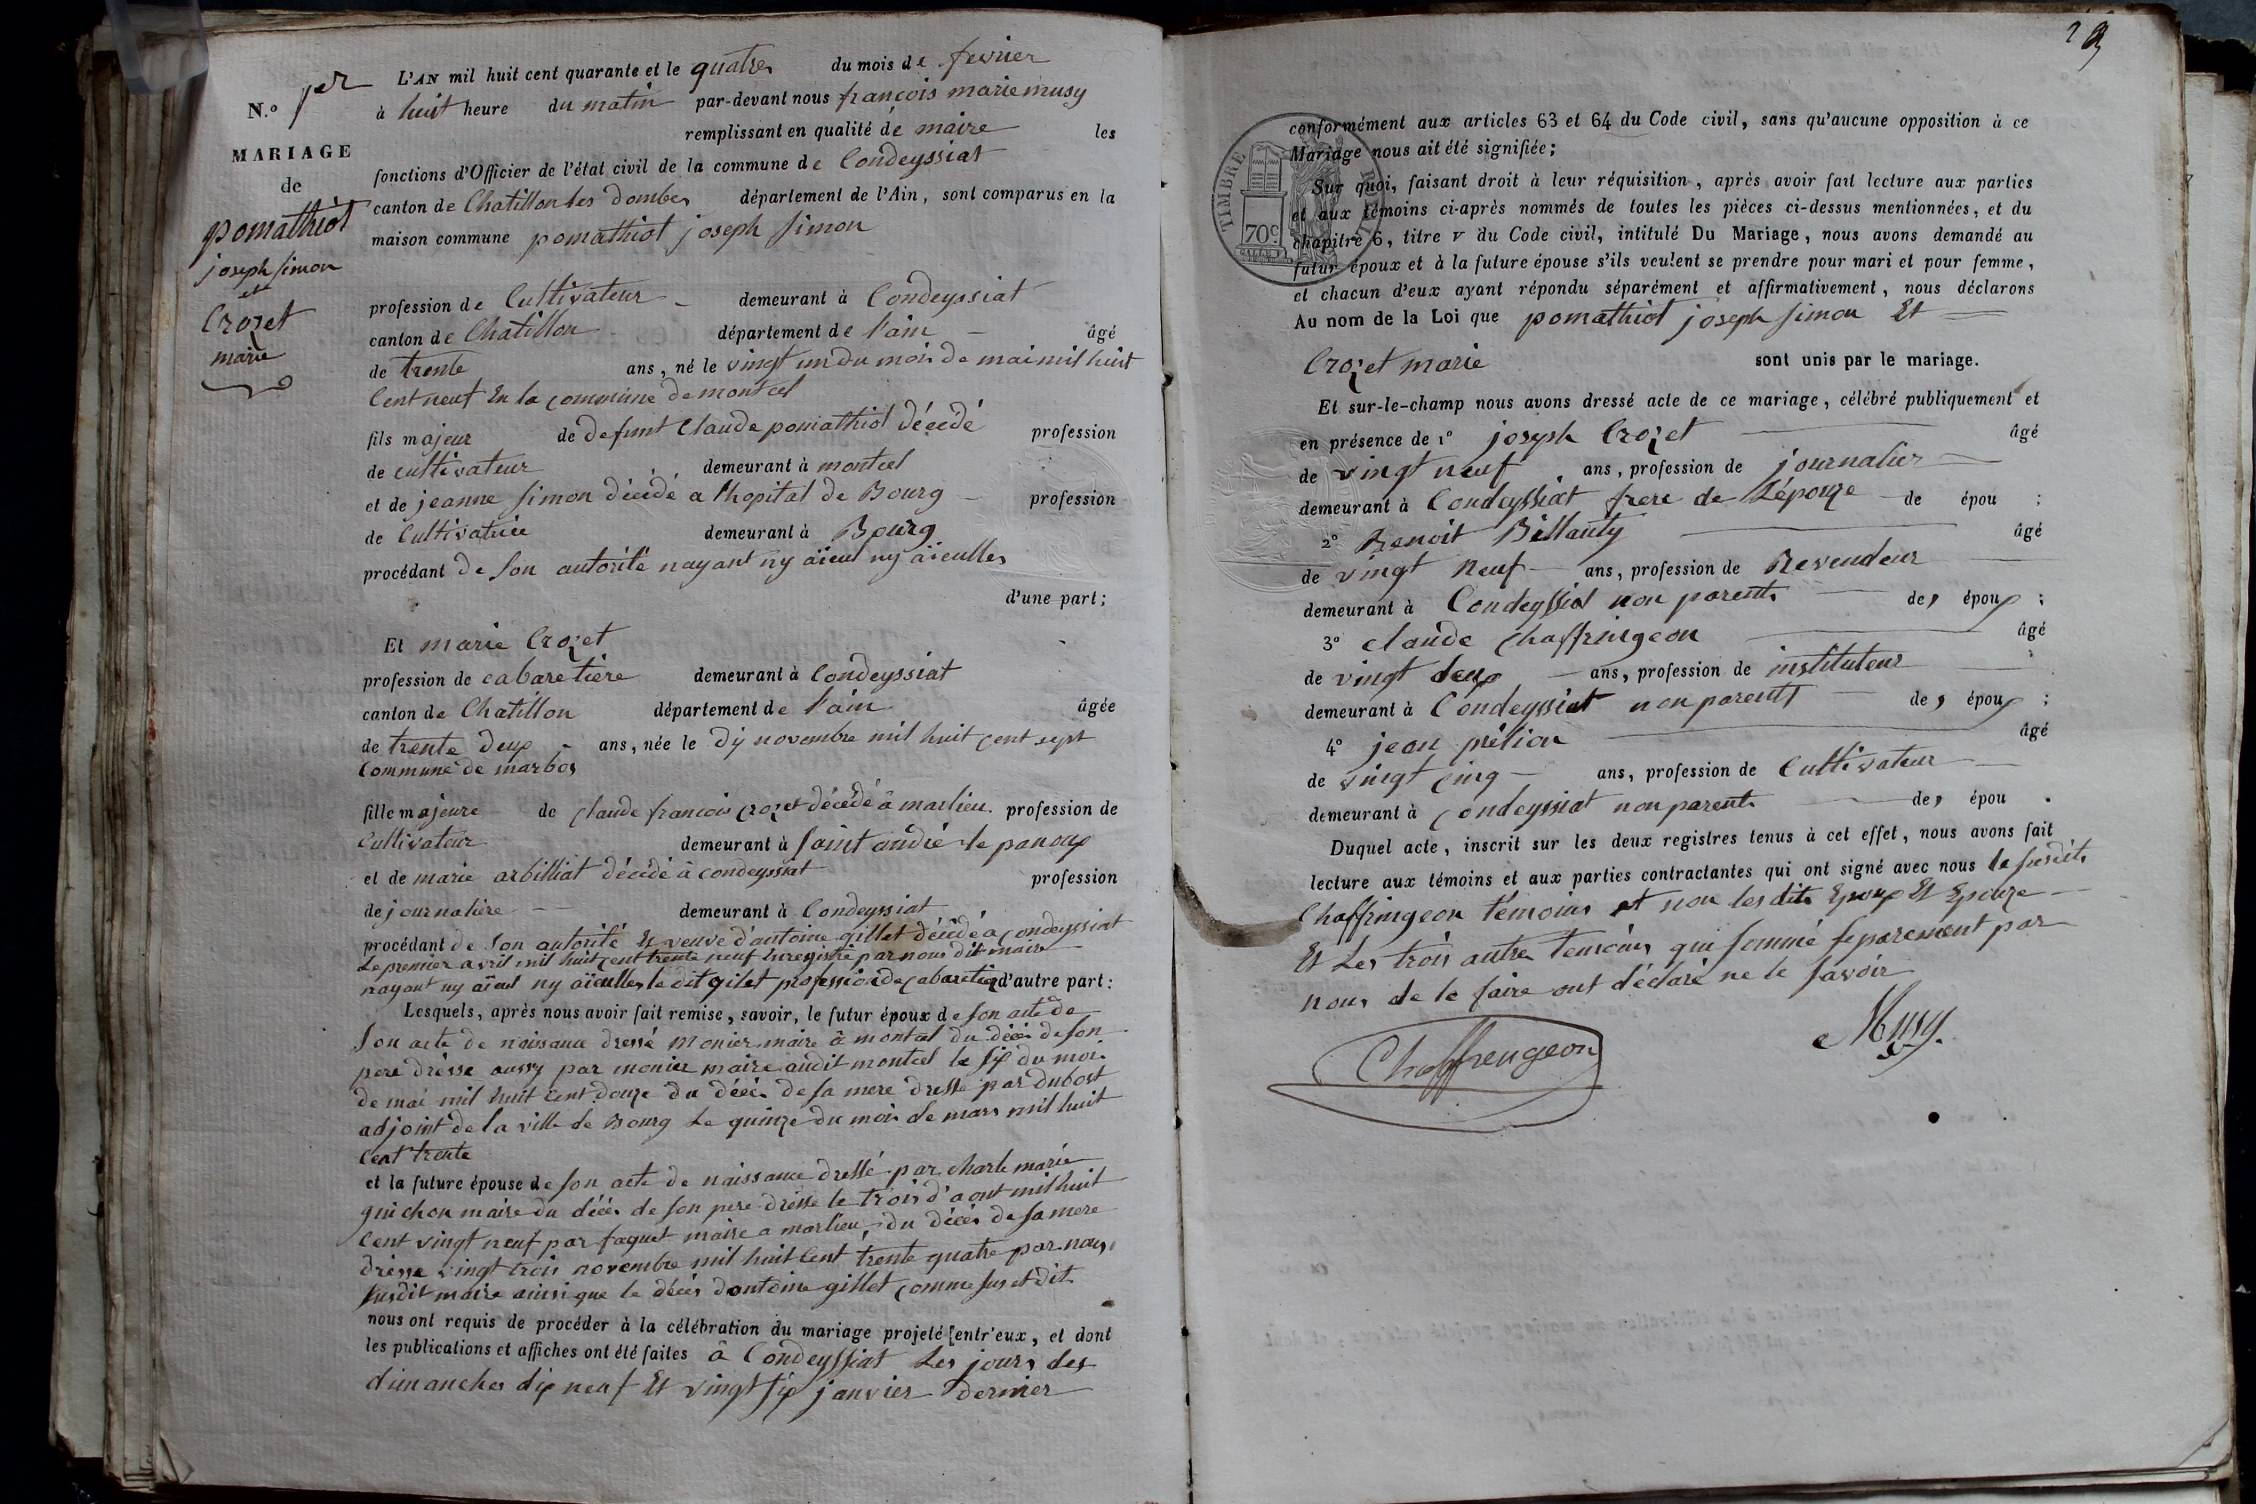 N.º 1er
MARIAGE
de
pomathiot
joseph simon
et
Crozet
marie
L'AN mil huit cent quarante et le quatre du mois de fevrier
à huit heure du matin par-devant nous françois marie musy
remplissant en qualité de maire les
fonctions d'Officier de l'état civil de la commune de Condeyssiat
canton de Chatillon les dombes département de l'Ain, sont comparus en la
maison commune pomathiot joseph simon
profession de Cultivateur demeurant à Condeyssiat
canton de Chatillon département de l'ain âgé
de trente ans, né le vingt un du mois de mai mil huit
Cent neuf En la commune de montcel
fils majeur de defunt Claude pomathiot décédé profession
de cultivateur demeurant à montcel
et de jeanne simon décédé a l'hopital de Bourg profession
de Cultivatrice demeurant à Bourg
procédant de son autorité nayant ny aïeul ny aïeulles
d'une part;
Et marie Crozet
profession de cabaretière demeurant à Condeyssiat
canton de Chatillon département de l'ain âgée
de trente deux ans, née le dix novembre mil huit cent sept
Commune de marbos
fille majeure de claude francois crozet décédé à marlieu profession de
Cultivateur demeurant à saint andré le panoux
et de marie arbilliat décédé à condeyssiat profession
de journalière demeurant à Condeyssiat
procédant de son autorité Et veuve d'antoine gillet décédé a Condeyssiat
Le premier avril mil huit cent trente neuf Enregistré par nous dit maire
nayant ny aïeul ny aïeulles le dit gilet profession de cabaretier d'autre part:
Lesquels, après nous avoir fait remise, savoir, le futur époux de son acte de
son acte de naissance dressé monier maire à montcel du décès de son
pere dressé aussy par monier maire audit montcel le six du mois
de mai mil huit cent douze du décès de sa mere dressé par dubost
adjoint de la ville de Bourg Le quinze du mois de mars mil huit
Cent trente
et la future épouse de son acte de naissance dressé par charle marie
guichon maire du décès de son pere dressé le trois d'aout mil huit
Cent vingt neuf par faguet maire a marlieu, du décès de sa mere
dressé vingt trois novembre mil huit Cent trente quatre par nous
susdit maire ainsi que le décès d'antoine gillet comme sus et dit
nous ont requis de procéder à la célébration du mariage projeté entr'eux, et dont
les publications et affiches ont été faites à Condeyssiat Les jours des
dimanches dix neuf Et vingt six janvier dernier
TIMBRE
70c
conformément aux articles 63 et 64 du Code civil, sans qu'aucune opposition à ce
Mariage nous ait été signifiée;
Sur quoi, faisant droit à leur réquisition, après avoir fait lecture aux parties
et aux témoins ci-après nommés de toutes les pièces ci-dessus mentionnées, et du
chapitre 6, titre v du Code civil, intitulé Du Mariage, nous avons demandé au
futur époux et à la future épouse s'ils veulent se prendre pour mari et pour femme,
et chacun d'eux ayant répondu séparément et affirmativement, nous déclarons
Au nom de la Loi que pomathiot joseph simon Et
Crozet marie sont unis par le mariage.
Et sur-le-champ nous avons dressé acte de ce mariage, célébré publiquement et
en présence de 1º joseph Crozet âgé
de vingt neuf ans, profession de journalier
demeurant à Condeyssiat frere de L'épouze de épou ;
2º Benoit Billauty âgé
de vingt Neuf ans, profession de Revendeur
demeurant à Condeyssiat non parents des époux ;
3º claude chaffringeon âgé
de vingt deux ans, profession de instituteur
demeurant à Condeyssiat non parents des époux ;
4º jean âgé
de vingt cinq ans, profession de Cultivateur
demeurant à Condeyssiat non parents des épou .
Duquel acte, inscrit sur les deux registres tenus à cet effet, nous avons fait
lecture aux témoins et aux parties contractantes qui ont signé avec nous le susdit
Chaffringeon témoins et non les dits Epoux Et Epouze
Et Les trois autre temoins qui sommé séparement par
nous de le faire ont déclaré ne le savoir
Chaffrengeon
Musy